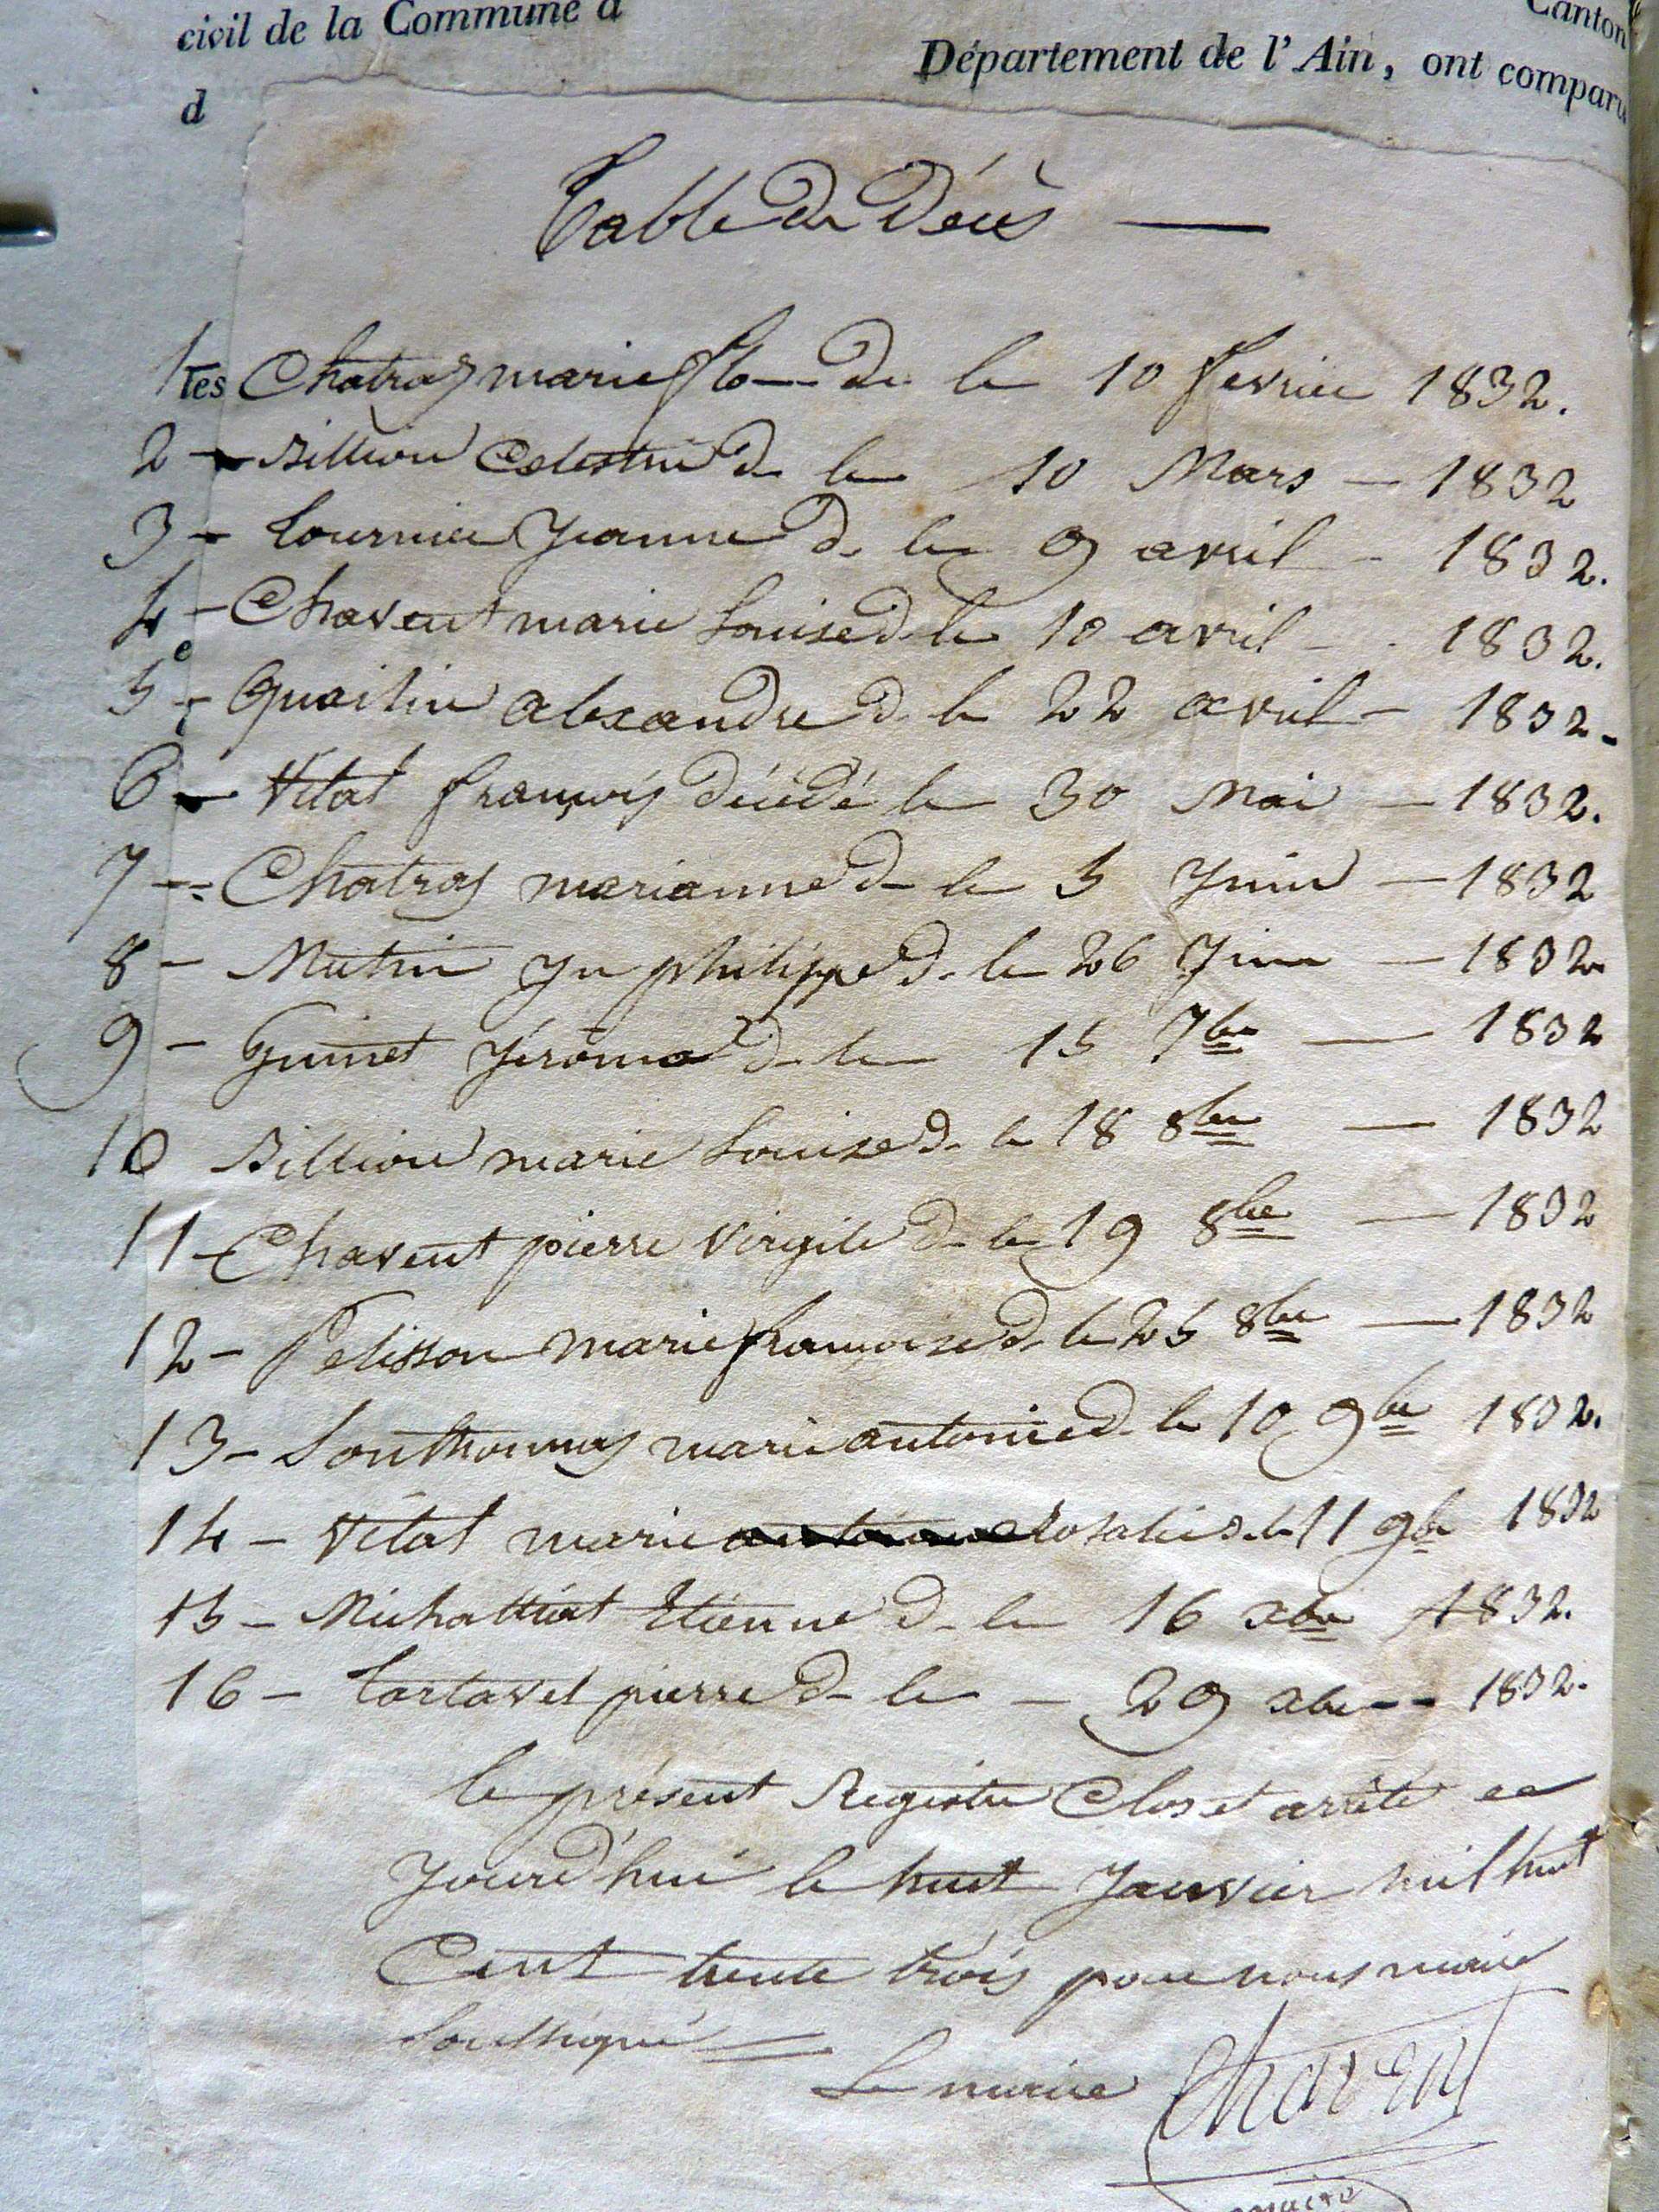 civil de la Commune d
Canton
d
Département de l'Ain, ont comparu
Table de Décès —
1 tes Chatray marie flo-- de le 10 fevrier 1832.
2 - Billion Celestin d le 10 Mars - 1832
3 - tournier Jeanne d. le 9 avril - 1832.
4 - Chavent marie Louise d. le 10 avril - 1832.
5 - alexandre d. le 22 avril - 1832-
6 - Vital françois décédé le 30 Mai - 1832.
7 -= Chatray marianne d- le 5 Juin - 1832
8 - Mutin Jn philippe d. le 26 Juin - 1832
9 - Guinet Jérome d- le 15 7bre — 1832
10 Billion marie Louise d- le 18 8bre — 1832
11 - Chavent pierre Virgile d- le 19 8bre — 1832
12 - Pelisson marie francoise d- le 25 8bre — 1832
13 - Southonnay marie antonie d- le 10 9bre 1832.
14 - Vital marie rosalie d. le 11 9bre 1832
15 - Michallat Etienne d- le 16 xbre 1832.
16 - tartavel pierre d- le - 29 xbre -- 1832.
le présent Registre Clos et arrêté ce
Jourd'hui le huit Janvier mil huit
Cent trente trois par nous maire
Soussigné
Le maire Chavent
maire